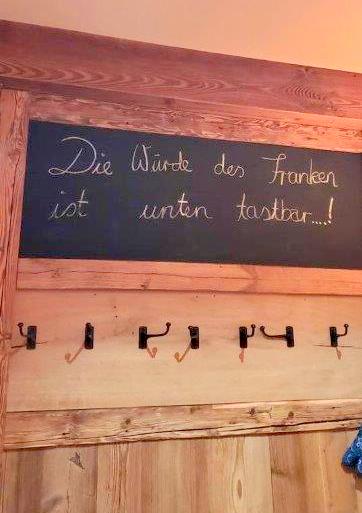 Die Würde des Franken
ist unten tastbar....!